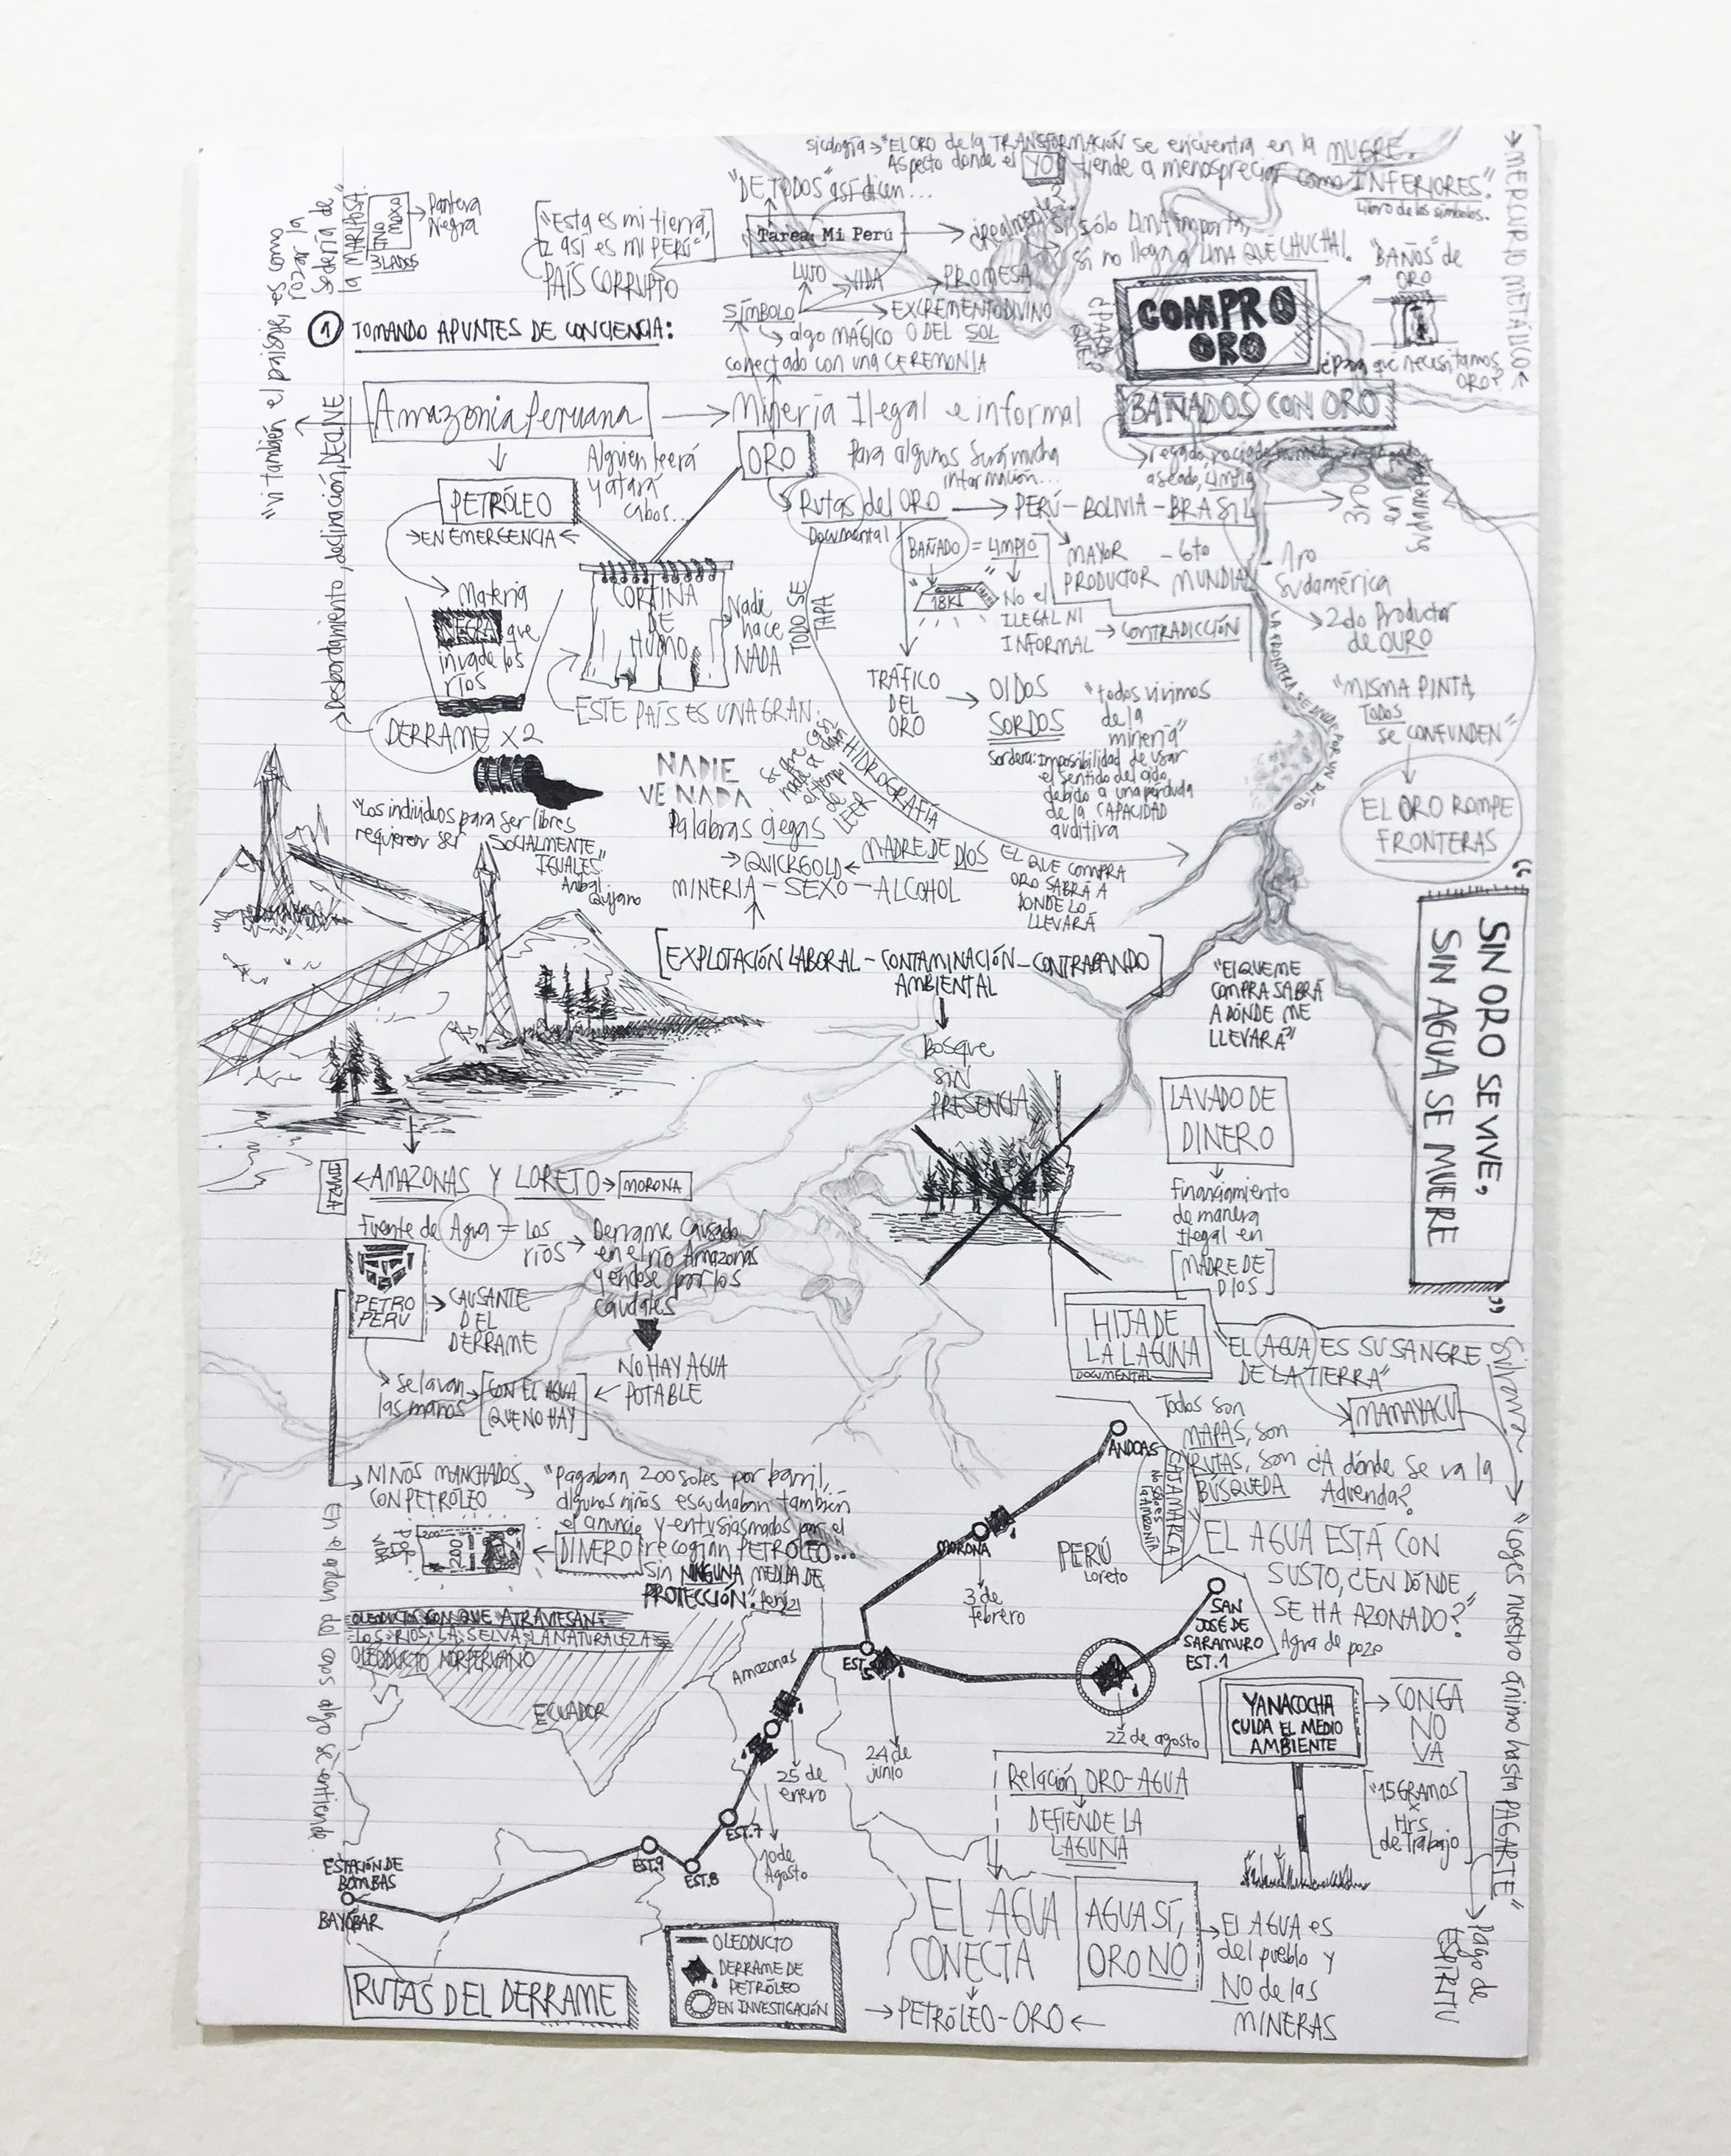 sicología → "EL ORO de la TRANSFORMACIÓN se encuentra en la MUGRE.
Aspecto donde el YO tiende a menospreciar como INFERIORES".
Libro de los símbolos.
→ MERCURIO METÁLICO ←
"DE TODOS" así dicen...
Tarea: Mi Perú
si sólo LIMA importa,
si no llega a LIMA QUE CHUCHA!
["Esta es mi tierra,
así es mi PERÚ"]
PAÍS CORRUPTO
Pantera
Negra
3 LADOS
"Vi también el paisaje, es como
rozar la
sedería de
la MARIPOSA"
LUJO
VIDA
PROMESA
EXCREMENTO DIVINO
SÍMBOLO
algo MÁGICO O DEL SOL
conectado con una CEREMONIA
COMPRO
ORO
"BAÑOS" de
ORO
¿para qué necesitamos
ORO?
BAÑADOS CON ORO
1 TOMANDO APUNTES DE CONCIENCIA:
Amazonía Peruana → Minería Ilegal e informal
Desbordamiento, declinación, DECLIVE
PETRÓLEO
→ EN EMERGENCIA ←
Alguien leerá
y atará
cabos...
ORO
Para algunos será mucha
información...
aseado, LIMPIO
Rutas del ORO → PERÚ - BOLIVIA - BRASIL
Documental
3ro
en
Sudamérica
BAÑADO = LIMPIO
18K
No el
ILEGAL NI
INFORMAL → CONTRADICCIÓN
MAYOR - 6to
PRODUCTOR MUNDIAL
- 1ro
Sudamérica
2do Productor
de OURO
Materia
NEGRA que
invade los
ríos
DERRAME X2
CORTINA
DE
HUMO
Nadie
hace
NADA
TODO SE
TAPA
ESTE PAÍS ES UNA GRAN
TRÁFICO
DEL
ORO
→ OIDOS
SORDOS
"todos vivimos
de la
minería"
Sordera: Imposibilidad de usar
el sentido del oído
debido a una pérdida
de la CAPACIDAD
auditiva
LA FRONTERA SE UNDE POR UN RÍO
"MISMA PINTA,
TODOS
se CONFUNDEN"
EL ORO ROMPE
FRONTERAS
HIDROGRAFÍA
NADIE
VE NADA
Palabras ciegas
"Los individuos para ser libres
requieren ser SOCIALMENTE
IGUALES"
Aníbal
Quijano
→ QUICKGOLD ← MADRE DE DIOS
MINERIA - SEXO - ALCOHOL
EL QUE COMPRA
ORO SABRÁ A
DONDE LO
LLEVARÁ
[EXPLOTACIÓN LABORAL - CONTAMINACIÓN - CONTRABANDO]
AMBIENTAL
"El QUE ME
COMPRA SABRÁ
A DÓNDE ME
LLEVARÁ"
"SIN ORO SE VIVE,
SIN AGUA SE MUERE"
Bosque
SIN
PRESENCIA
LAVADO DE
DINERO
Financiamiento
de manera
Ilegal en
[MADRE DE
DIOS]
← AMAZONAS Y LORETO → MORONA
Fuente de Agua = LOS
ríos
Derrame Causado
en el río Amazonas
yéndose por los
caudales
NO HAY AGUA
POTABLE
PETRO
PERU
→ CAUSANTE
DEL
DERRAME
se lavan
las manos
[CON EL AGUA
QUE NO HAY]
HIJA DE
LA LAGUNA
DOCUMENTAL
"EL AGUA ES SU SANGRE
DE LA TIERRA"
MAMAYACU
NIÑOS MANCHADOS
CON PETRÓLEO
"Pagaban 200 soles por barril,
algunos niños escuchaban también
el anuncio y entusiasmados por el
DINERO recogían PETRÓLEO...
Sin NINGUNA MEDIDA DE
PROTECCIÓN".
200
Todos son
MAPAS, son
RUTAS, son
BÚSQUEDA
¿A dónde se va la
Adrenda?
CAJAMARCA
No sólo es
la AMAZONÍA
EL AGUA ESTÁ CON
SUSTO, ¿EN DÓNDE
SE HA AZONADO?"
Agua de pozo
"Coges nuestro ánimo hasta PAGARTE"
Pago de
ESPÍRITU
En el orden del caos algo se entiende
OLEODUCTOS CON QUE ATRAVIESAN
LOS RIOS, LA SELVA, LA NATURALEZA
OLEODUCTO NORPERUANO
ANDOAS
MORONA
3 de
febrero
PERÚ
Loreto
SAN
JOSÉ DE
SARAMURO
EST. 1
EST. 5
Amazonas
ECUADOR
22 de agosto
24 de
junio
25 de
enero
10 de
Agosto
EST. 7
EST. 8
EST. 9
ESTACIÓN DE
BOMBAS
BAYÓBAR
YANACOCHA
CUIDA EL MEDIO
AMBIENTE
→ CONGA
NO
VA
["15 GRAMOS
x
Hrs
de trabajo]
Relación ORO-AGUA
DEFIENDE LA
LAGUNA
EL AGUA
CONECTA
→ PETRÓLEO - ORO ←
AGUA SÍ,
ORO NO
→ El AGUA es
del pueblo y
NO de las
MINERAS
RUTAS DEL DERRAME
OLEODUCTO
DERRAME DE
PETRÓLEO
EN INVESTIGACIÓN